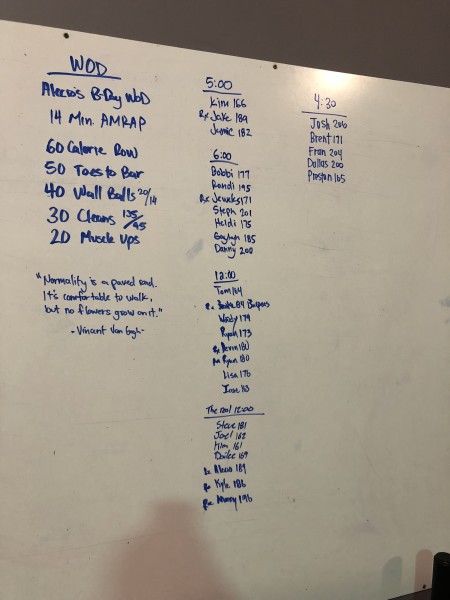 WOD
B-Day WOD
14 Min. AMRAP
60 Calorie Row
50 Toes to Bar
40 Wall Balls 20/14
30 Cleans 135/95
20 Muscle Ups
"Normality is a paved road.
It's comfortable to walk,
but no flowers grow on it."
- Vincent Van Gogh -
5:00
Kim 166
Rx Jake 189
Jamie 182
6:00
Bobbi 177
Randi 195
Rx Jewels 171
Steph 201
Heidi 175
185
Danny 200
12:00
Tom 164
Rx
Woody 179
Ryan 173
Rx Devin 180
Rx Ryan 180
Lisa 176
The real 12:00
Steve 181
Joel 162
Kim 161
169
Rx Alecia 189
Rx Kyle 186
Rx 196
4:30
Josh 206
Brent 171
Fran 204
Dallas 200
Preston 165